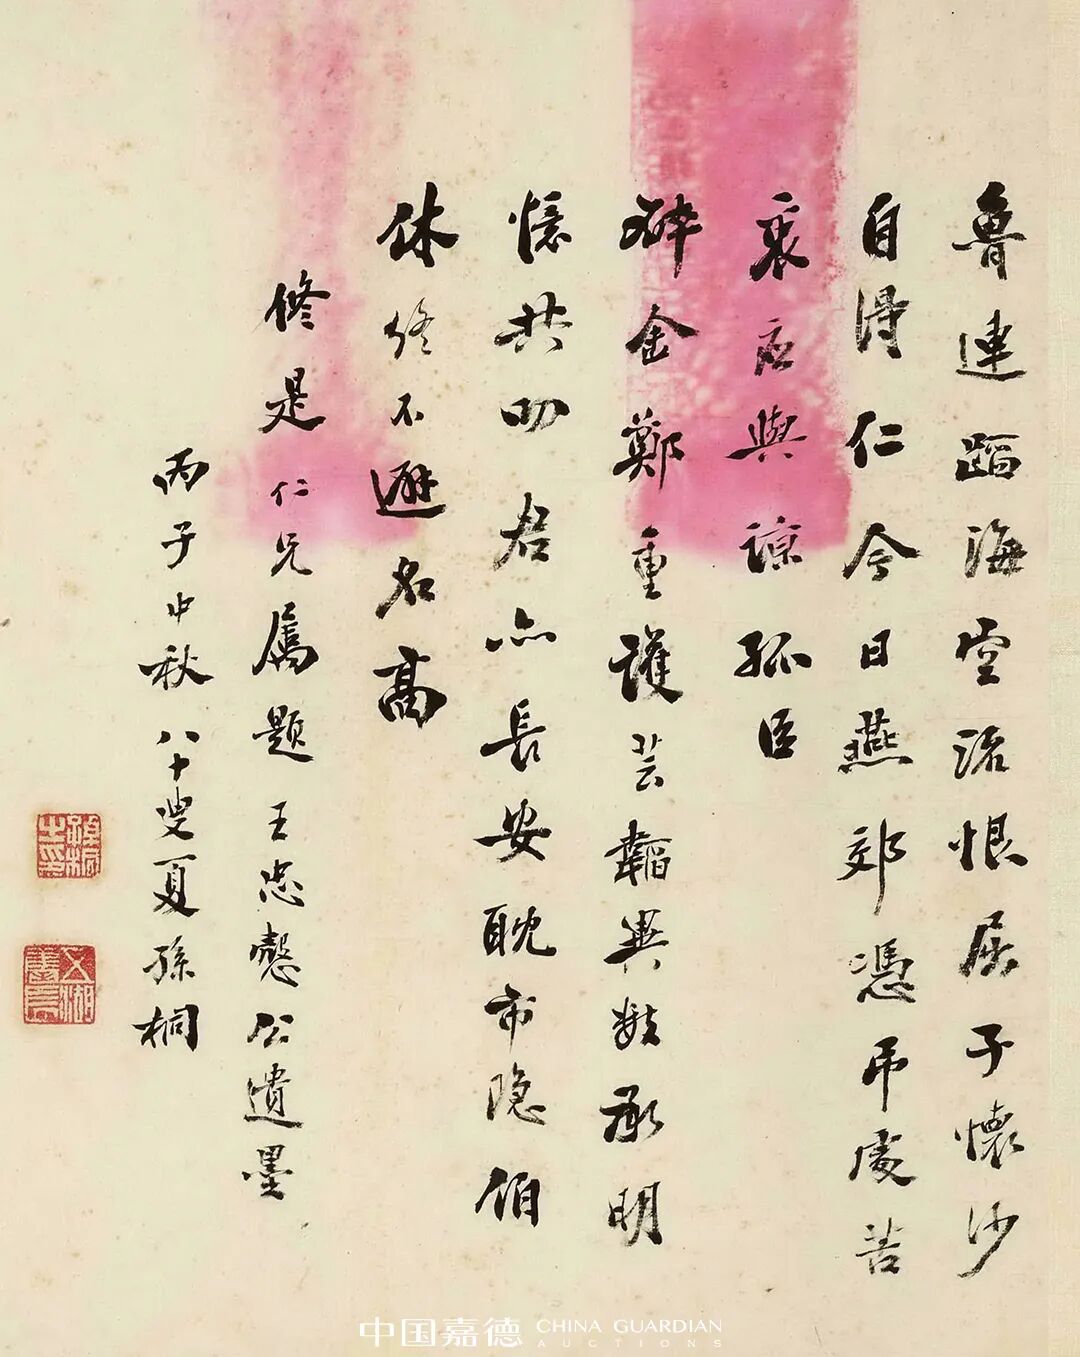 魯連蹈海空流恨屈子懷沙
自得仁今日燕郊憑弔處苦
衷應與諒孤臣
碎金鄭重護芸韜輿數承明
憶共叨君亦長安耽市隱伯
休終不避名高
修是仁兄屬題王忠慤公遺墨
丙子中秋八十叟夏孫桐
中国嘉德 CHINA GUARDIAN
AUCTIONS